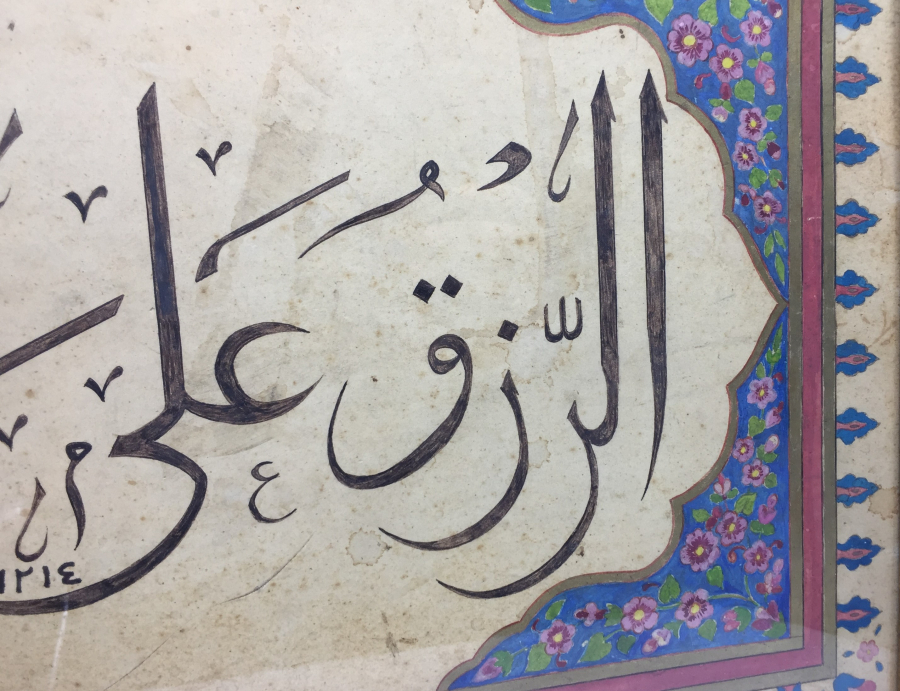 الرِّزْقُ عَلَى
١٢١٤